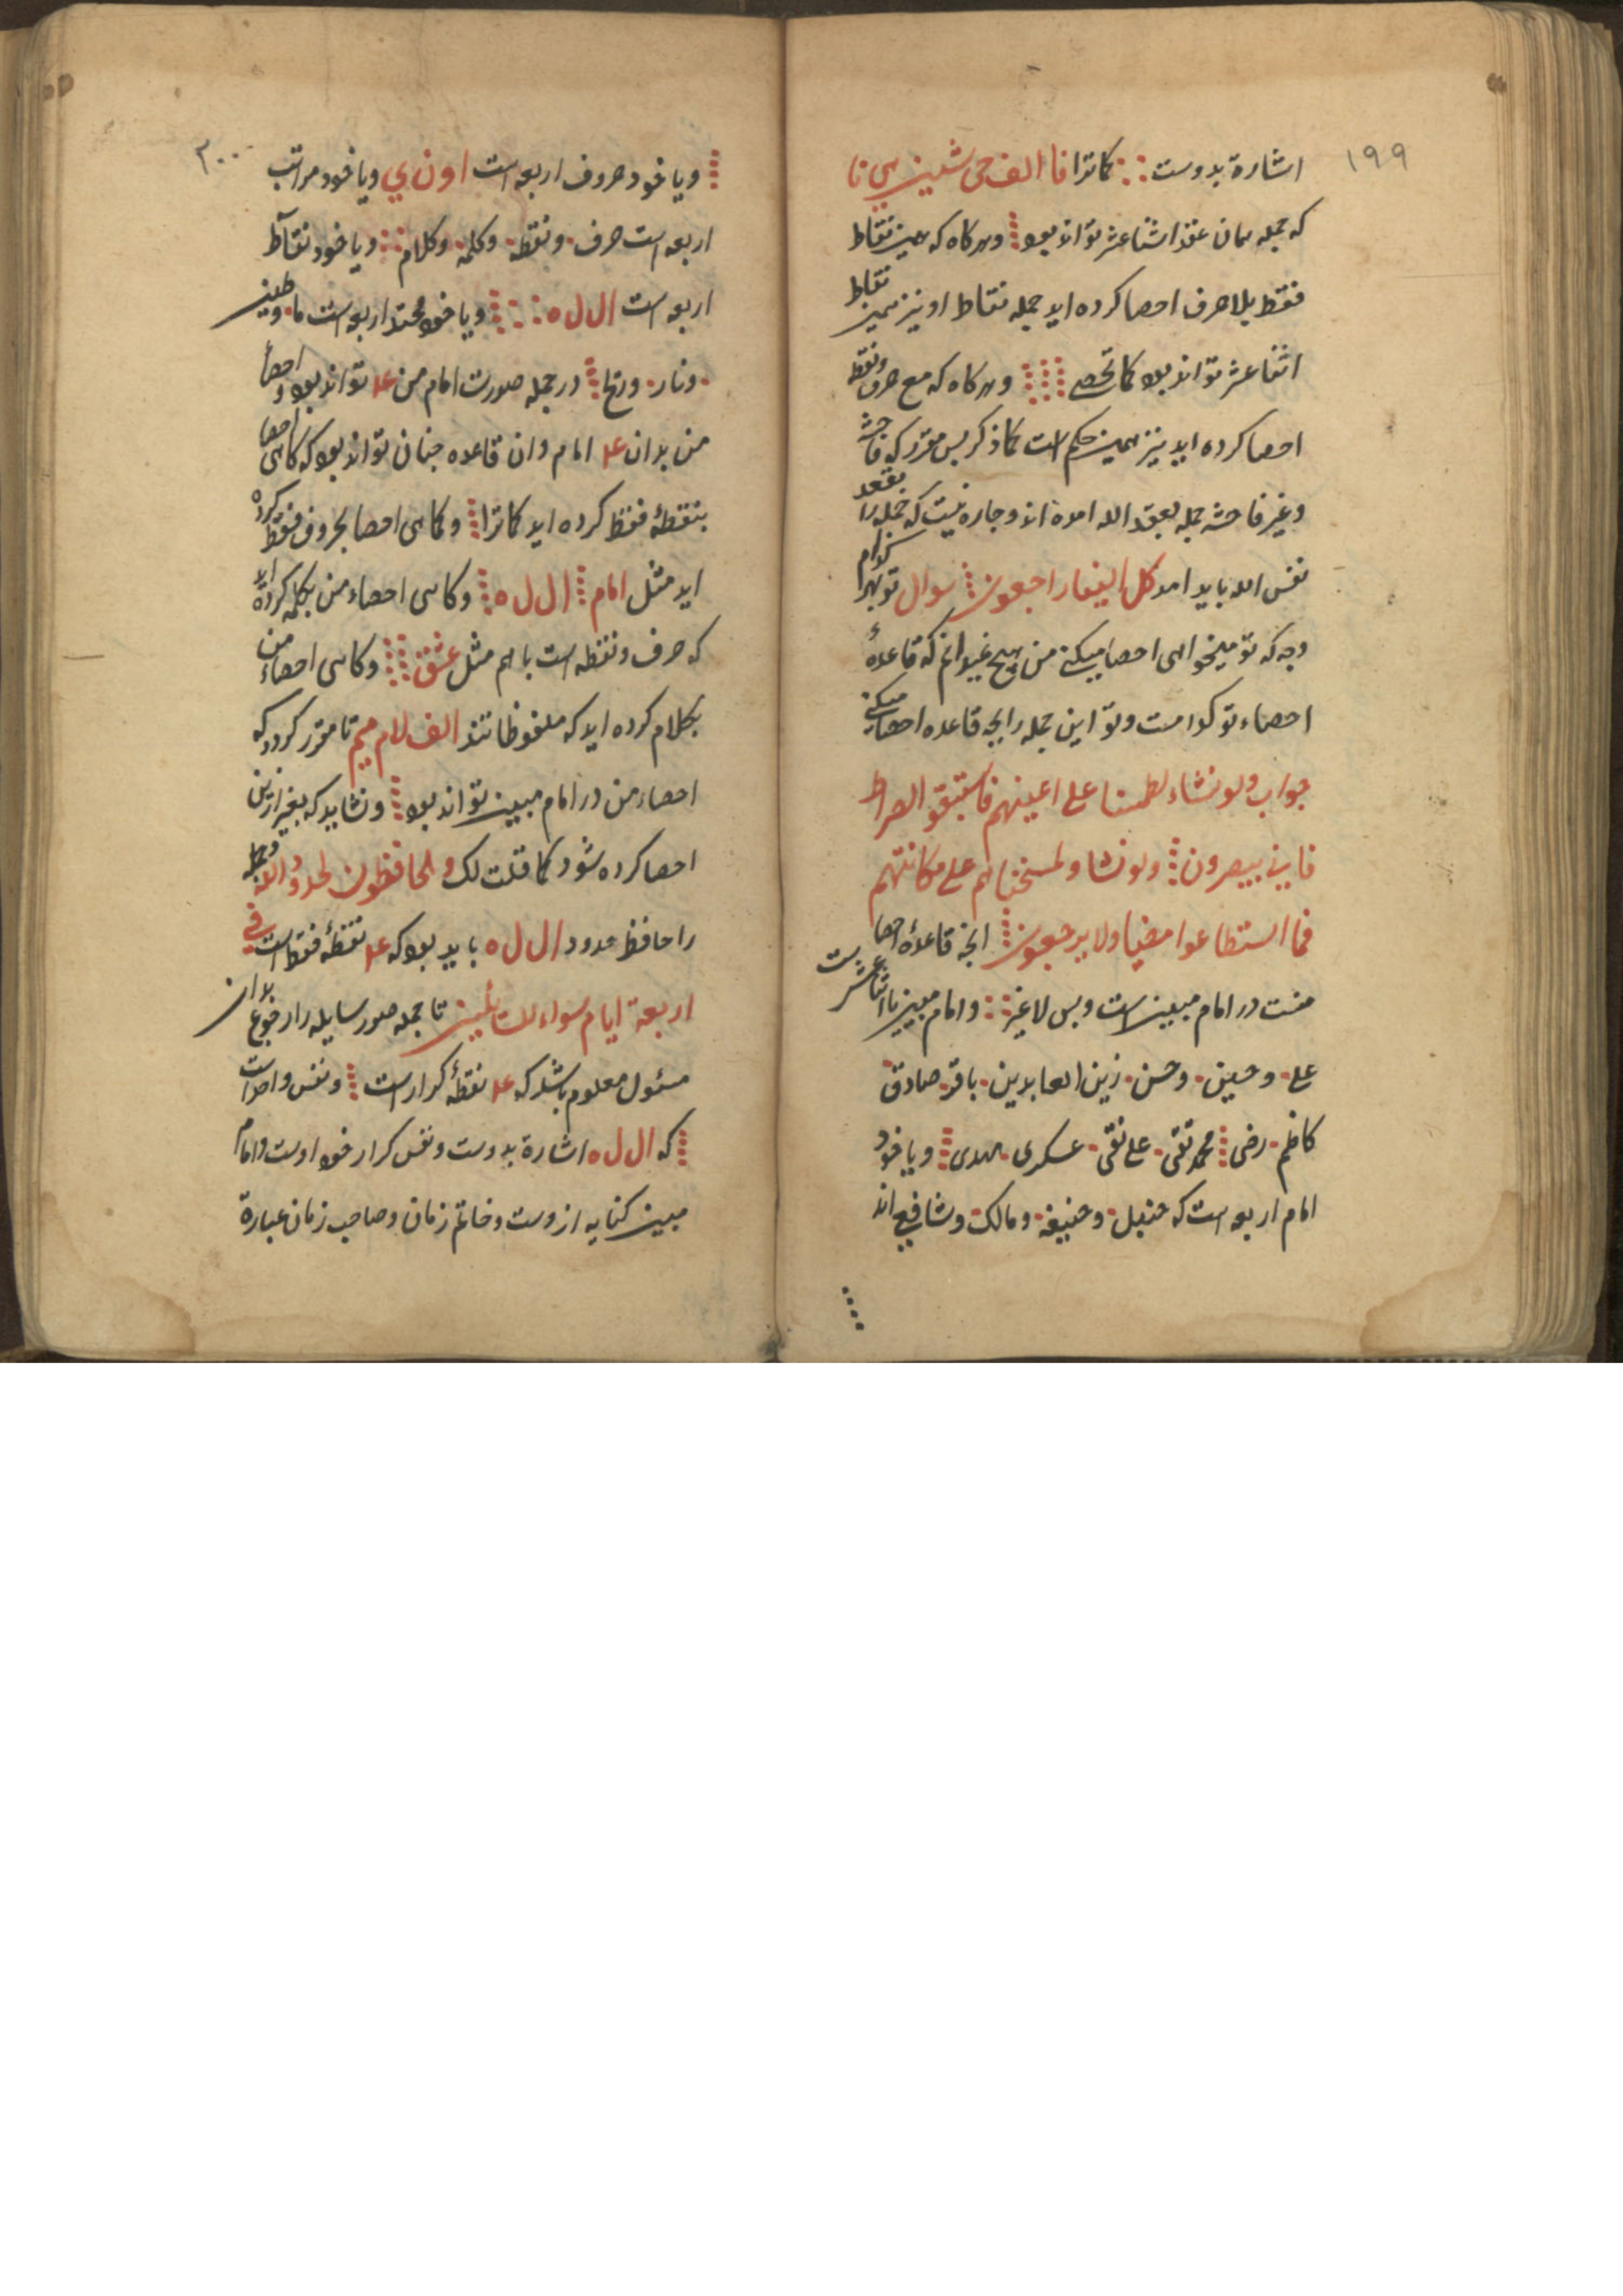 ۱۹۹
اشارة بدوست كماترا فا الف حی شین ی نا
که جمله همان عقد اثنا عشر تواند بود و هرکاه که همین نقاط
فقط بلا حرف احصا کرده اید جمله نقاط او نیز همین نقاط
اثنا عشر تواند بود كما تحصی و هرکاه که مع حرف و نقطه
احصا کرده اید نیز همین حکم است کما ذکر بس مقرر که فاحشه
و غیر فاحشه جمله بعقد الله امده اند و جاره نیست که جمله را بعقد
نفس الله باید امد كل الینا راجعون سوال تو بهر کدام
وجه که تو میخواهی احصا میکنی من هیچ نمیدانم که قاعدۀ
احصاء تو کدامست و تو این جمله را بچه قاعده احصا میکنی
جواب ولو نشاء لطمسنا علی اعینهم فاستبقوا الصراط
فاین یبصرون ولو نشاء لمسخناهم علی مکانتهم
فما استطاعوا مضیا ولا یرجعون انچه قاعدۀ احصا
منست در امام مبین است و بس لا غیر و امام مبین یا اثنا عشر است
علی و حسین و حسن زین العابدین باقر صادق
کاظم رضی محمد تقی علی نقی عسکری مهدی و یا خود
امام اربعه است که حنبل و حنیفه و مالک و شافعی اند
۲۰۰
و یا خود حروف اربعه است ا و ن ي و یا خود مراتب
اربعه است حرف و نقطه و کلمه و کلام و یا خود نقاط
اربعه است ا ل ل ه و یا خود محتد اربعه است ما و طین
و نار و ریح در جمله صورت امام من عد تواند بود و احصأ
من بدان عد امام و ان قاعده جنان تواند بود که کاهی احصا
بنقطۀ فقط کرده اید کماترا و کاهی احصا بحروف فقط کرده
اید مثل امام ا ل ل ه و کاهی احصاء من بکلمه کرده اید
که حرف و نقطه است با هم مثل عشق و کاهی احصاء من
بکلام کرده اید که ملفوظاتند الف لام میم تا مقرر کردد که
احصاء من در امام مبین تواند بود و نشاید که بغیر ازین
احصا کرده شود کما قلت لک والحافظون لحدود الله و جمله
را حافظ حدود ا ل ل ه باید بود که عد نقطۀ فقط است في
اربعة ایام سواء للسائلین تا جمله صور سایله را رجوع بدان
مسئول معلوم باشد که عد نقطۀ کرار است و نفس واحد است
که ا ل ل ه اشارة بدوست و نفس کرار خود اوست و امام
مبین کنایه ازوست و خاتم زمان و صاحب زمان عبارة